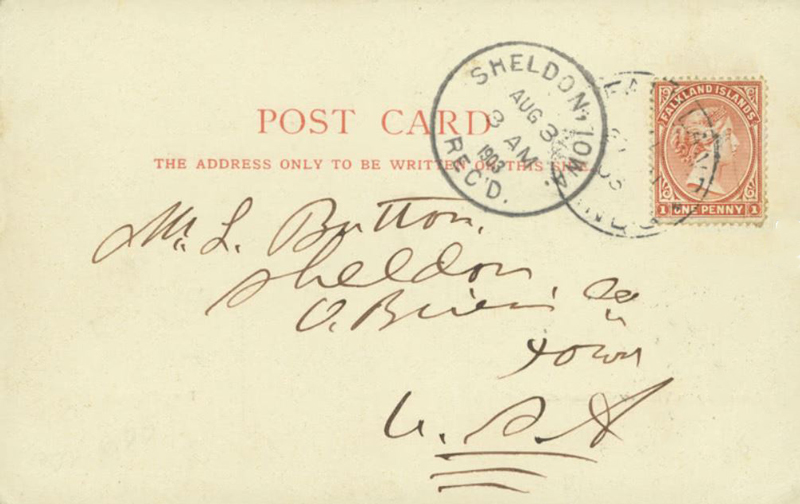 POST CARD
THE ADDRESS ONLY TO BE WRITTEN ON THIS SIDE
SHELDON, IOWA.
AUG 3
3 AM
1903
REC'D.
FALKLAND ISLANDS
1 ONE PENNY 1
Mr. L. Button,
Sheldon,
O.Brien Co
Iowa
U.S.A